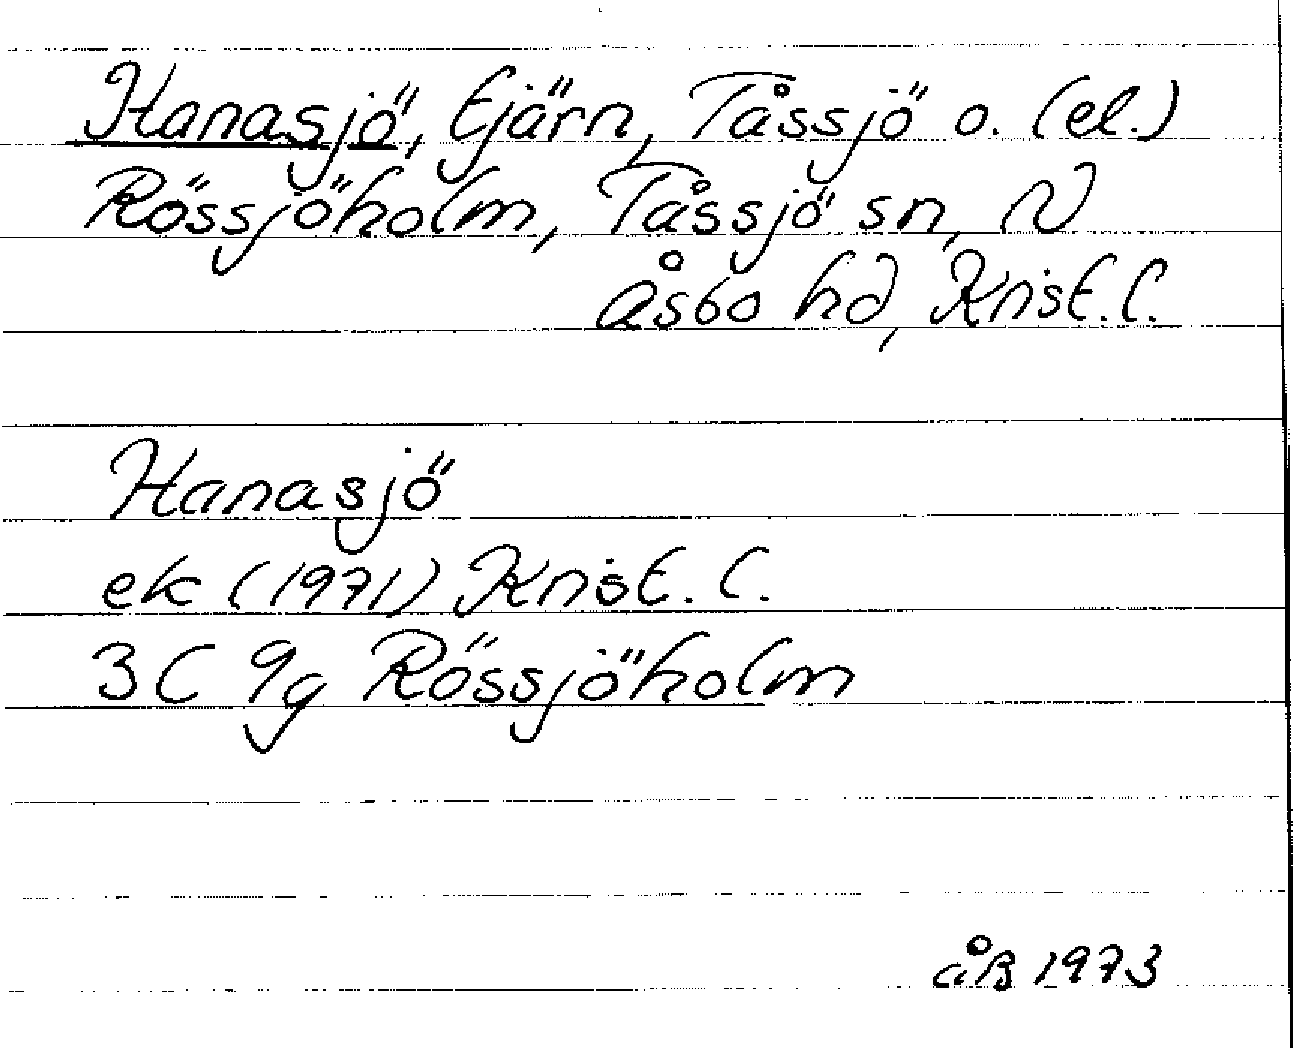 Hanasjö, tjärn, Tåssjö o. (el.)
Rössjöholm, Tåssjö sn, N
Åsbo hd, Krist. l.
Hanasjö
ek (1971) Krist. l.
3C 9g Rössjöholm
åB 1973